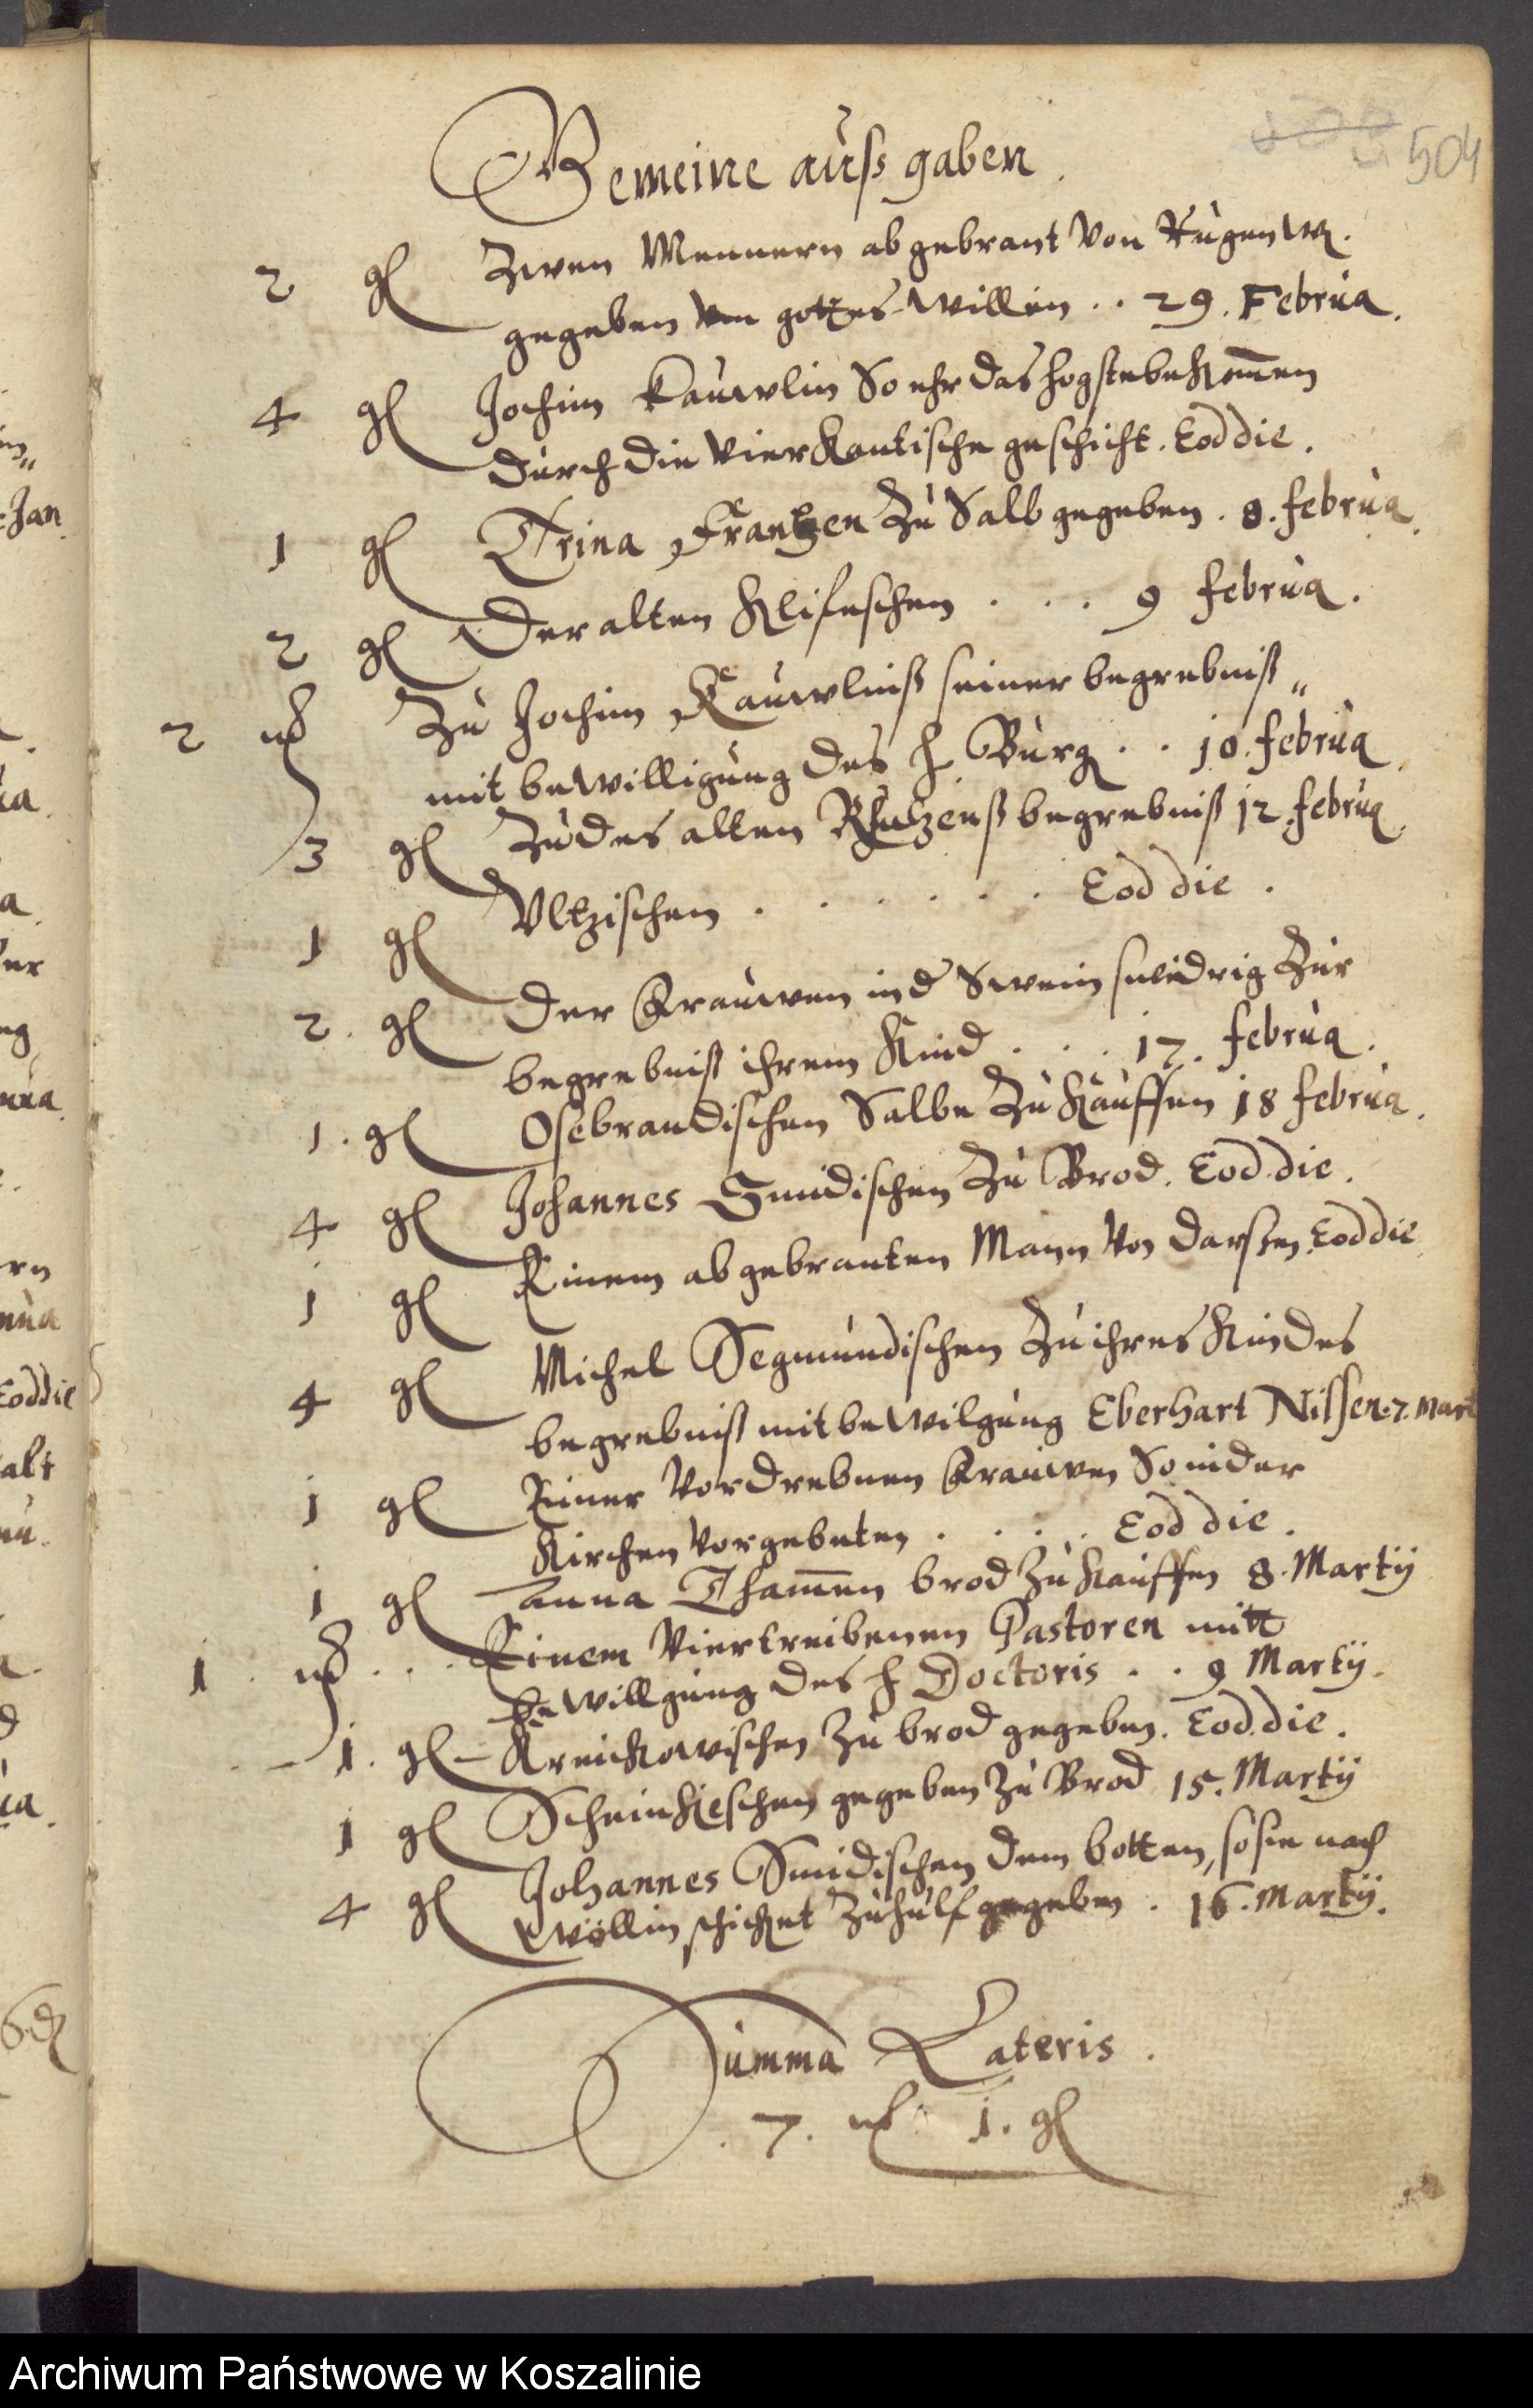 504
Gemeine auss gaben.
2 gl Zwen Mennern abgebrant von Rugenw.
gegeben vm gottes willen .. 29. Februa.
4 gl Jochim Kauwlin So ehr das hogste bekommen
durch die vierkantische geschicht. Eod die.
1 gl Trina Frantzen zu Salb gegeben. 8. februa.
2 gl Der alten Klifeschen . . . 9 februa.
2 mk Zu Jochim Kauwlinß seiner begrebniß„
mit bewilligung des h. Burg . . 10. februa.
3 gl Zu des alten begrebniß 12. februa.
1 gl Vltzischen . . . . . . Eod die.
2. gl Der Frauwen in d Swein zur
begrebniß ihrem Kind . . . 17. februa.
1. gl Osebrandischen Salbe zu kauffen 18 februa.
4 gl Johannes Smidischen zu Brod. Eod. die.
1 gl Einem abgebranten Mann von Darßen. Eod die
4 gl Michel Segmundischen zu ihres Kindes
begrebniß mit bewilgung Eberhart Nissen. 7. Mart
1 gl Einer vordrebnen Frauwen So in der
Kirchen vorgebeten . . . . Eod die.
1 gl Anna Thammen brod zu kauffen 8. Martij
1 mk . . . Einem viertreibenen Pastoren mitt
bewillgung des h Doctoris . . 9 Martij.
1. gl – Kreickowischen zu brod gegeben. Eod. die.
1 gl Scheinkeschen gegeben zu Brod 15. Martij
4 gl Johannes Smidischen dem botten, so sie nach
Wollin schicket zu hulf gegeben. 16. Martij.
Summa Lateris.
. 7. mk 1. gl
Jan
Eoddie
Archiwum Państwowe w Koszalinie